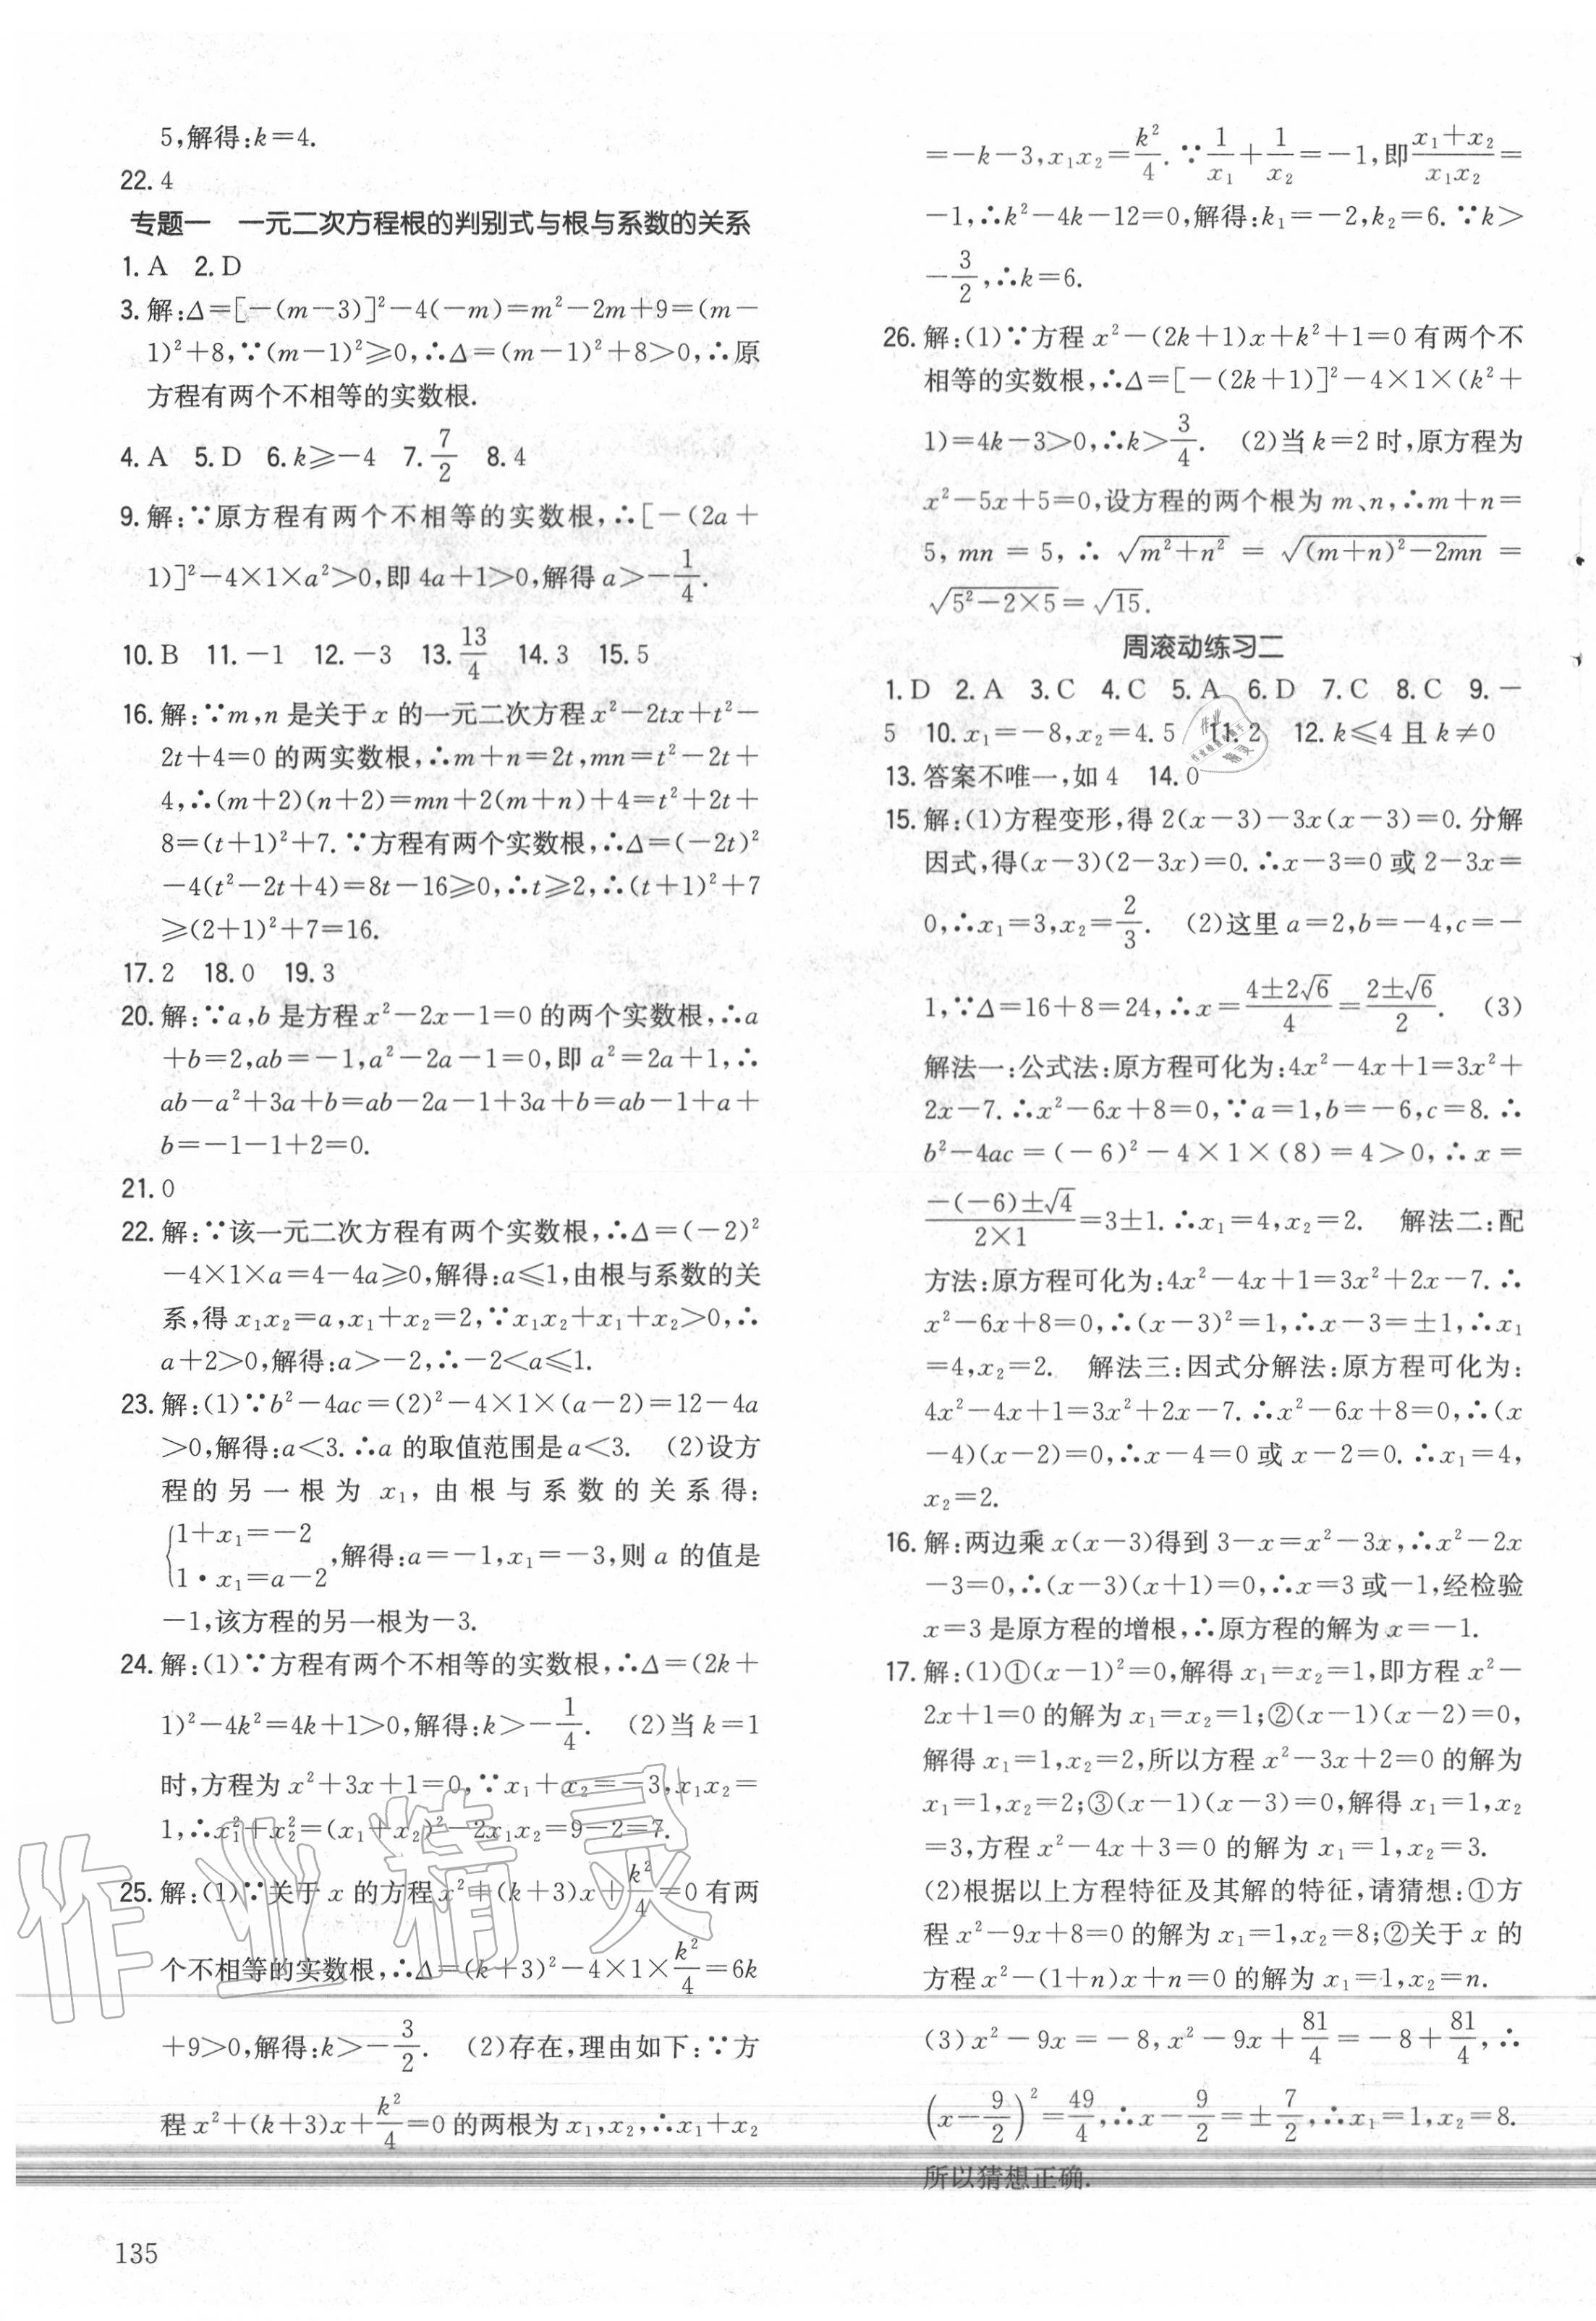 5,解得:k=4.
22. 4
专题一 一元二次方程根的判别式与根与系数的关系
1. A 2. D
3. 解:Δ=[-(m-3)]²-4(-m)=m²-2m+9=(m-
1)²+8,∵(m-1)²≥0,∴Δ=(m-1)²+8>0,∴原
方程有两个不相等的实数根.
4. A 5. D 6. k≥-4 7. 7/2 8. 4
9. 解:∵原方程有两个不相等的实数根,∴[-(2a+
1)]²-4×1×a²>0,即 4a+1>0,解得 a>-1/4.
10. B 11. -1 12. -3 13. 13/4 14. 3 15. 5
16. 解:∵m,n 是关于 x 的一元二次方程 x²-2tx+t²-
2t+4=0 的两实数根,∴m+n=2t,mn=t²-2t+
4,∴(m+2)(n+2)=mn+2(m+n)+4=t²+2t+
8=(t+1)²+7.∵方程有两个实数根,∴Δ=(-2t)²
-4(t²-2t+4)=8t-16≥0,∴t≥2,∴(t+1)²+7
≥(2+1)²+7=16.
17. 2 18. 0 19. 3
20. 解:∵a,b 是方程 x²-2x-1=0 的两个实数根,∴a
+b=2,ab=-1,a²-2a-1=0,即 a²=2a+1,∴
ab-a²+3a+b=ab-2a-1+3a+b=ab-1+a+
b=-1-1+2=0.
21. 0
22. 解:∵该一元二次方程有两个实数根,∴Δ=(-2)²
-4×1×a=4-4a≥0,解得:a≤1,由根与系数的关
系,得 x₁x₂=a,x₁+x₂=2,∵x₁x₂+x₁+x₂>0,∴
a+2>0,解得:a>-2,∴-2<a≤1.
23. 解:(1)∵b²-4ac=(2)²-4×1×(a-2)=12-4a
>0,解得:a<3.∴a 的取值范围是 a<3. (2)设方
程的另一根为 x₁,由根与系数的关系得:
{1+x₁=-2
1·x₁=a-2 ,解得:a=-1,x₁=-3,则 a 的值是
-1,该方程的另一根为-3.
24. 解:(1)∵方程有两个不相等的实数根,∴Δ=(2k+
1)²-4k²=4k+1>0,解得:k>-1/4. (2)当 k=1
时,方程为 x²+3x+1=0,∵x₁+x₂=-3,x₁x₂=
1,∴x₁²+x₂²=(x₁+x₂)²-2x₁x₂=9-2=7.
25. 解:(1)∵关于 x 的方程 x²+(k+3)x+k²/4=0 有两
个不相等的实数根,∴Δ=(k+3)²-4×1×k²/4=6k
+9>0,解得:k>-3/2. (2)存在,理由如下:∵方
程 x²+(k+3)x+k²/4=0 的两根为 x₁,x₂,∴x₁+x₂
作业精灵
135
=-k-3,x₁x₂=k²/4.∵1/x₁+1/x₂=-1,即(x₁+x₂)/(x₁x₂)=
-1,∴k²-4k-12=0,解得:k₁=-2,k₂=6.∵k>
-3/2,∴k=6.
26. 解:(1)∵方程 x²-(2k+1)x+k²+1=0 有两个不
相等的实数根,∴Δ=[-(2k+1)]²-4×1×(k²+
1)=4k-3>0,∴k>3/4. (2)当 k=2 时,原方程为
x²-5x+5=0,设方程的两个根为 m、n,∴m+n=
5,mn=5,∴√(m²+n²)=√((m+n)²-2mn)=
√(5²-2×5)=√15.
周滚动练习二
1. D 2. A 3. C 4. C 5. A 6. D 7. C 8. C 9. -
5 10. x₁=-8,x₂=4.5 11. 2 12. k≤4 且 k≠0
13. 答案不唯一,如 4 14. 0
15. 解:(1)方程变形,得 2(x-3)-3x(x-3)=0.分解
因式,得(x-3)(2-3x)=0.∴x-3=0 或 2-3x=
0,∴x₁=3,x₂=2/3. (2)这里 a=2,b=-4,c=-
1,∵Δ=16+8=24,∴x=(4±2√6)/4=(2±√6)/2. (3)
解法一:公式法:原方程可化为:4x²-4x+1=3x²+
2x-7.∴x²-6x+8=0,∵a=1,b=-6,c=8.∴
b²-4ac=(-6)²-4×1×(8)=4>0,∴x=
(-(-6)±√4)/(2×1)=3±1.∴x₁=4,x₂=2. 解法二:配
方法:原方程可化为:4x²-4x+1=3x²+2x-7.∴
x²-6x+8=0,∴(x-3)²=1,∴x-3=±1,∴x₁
=4,x₂=2. 解法三:因式分解法:原方程可化为:
4x²-4x+1=3x²+2x-7.∴x²-6x+8=0,∴(x
-4)(x-2)=0,∴x-4=0 或 x-2=0.∴x₁=4,
x₂=2.
16. 解:两边乘 x(x-3)得到 3-x=x²-3x,∴x²-2x
-3=0,∴(x-3)(x+1)=0,∴x=3 或-1,经检验
x=3 是原方程的增根,∴原方程的解为 x=-1.
17. 解:(1)①(x-1)²=0,解得 x₁=x₂=1,即方程 x²-
2x+1=0 的解为 x₁=x₂=1;②(x-1)(x-2)=0,
解得 x₁=1,x₂=2,所以方程 x²-3x+2=0 的解为
x₁=1,x₂=2;③(x-1)(x-3)=0,解得 x₁=1,x₂
=3,方程 x²-4x+3=0 的解为 x₁=1,x₂=3.
(2)根据以上方程特征及其解的特征,请猜想:①方
程 x²-9x+8=0 的解为 x₁=1,x₂=8;②关于 x 的
方程 x²-(1+n)x+n=0 的解为 x₁=1,x₂=n.
(3)x²-9x=-8,x²-9x+81/4=-8+81/4,∴
(x-9/2)²=49/4,∴x-9/2=±7/2,∴x₁=1,x₂=8.
所以猜想正确.